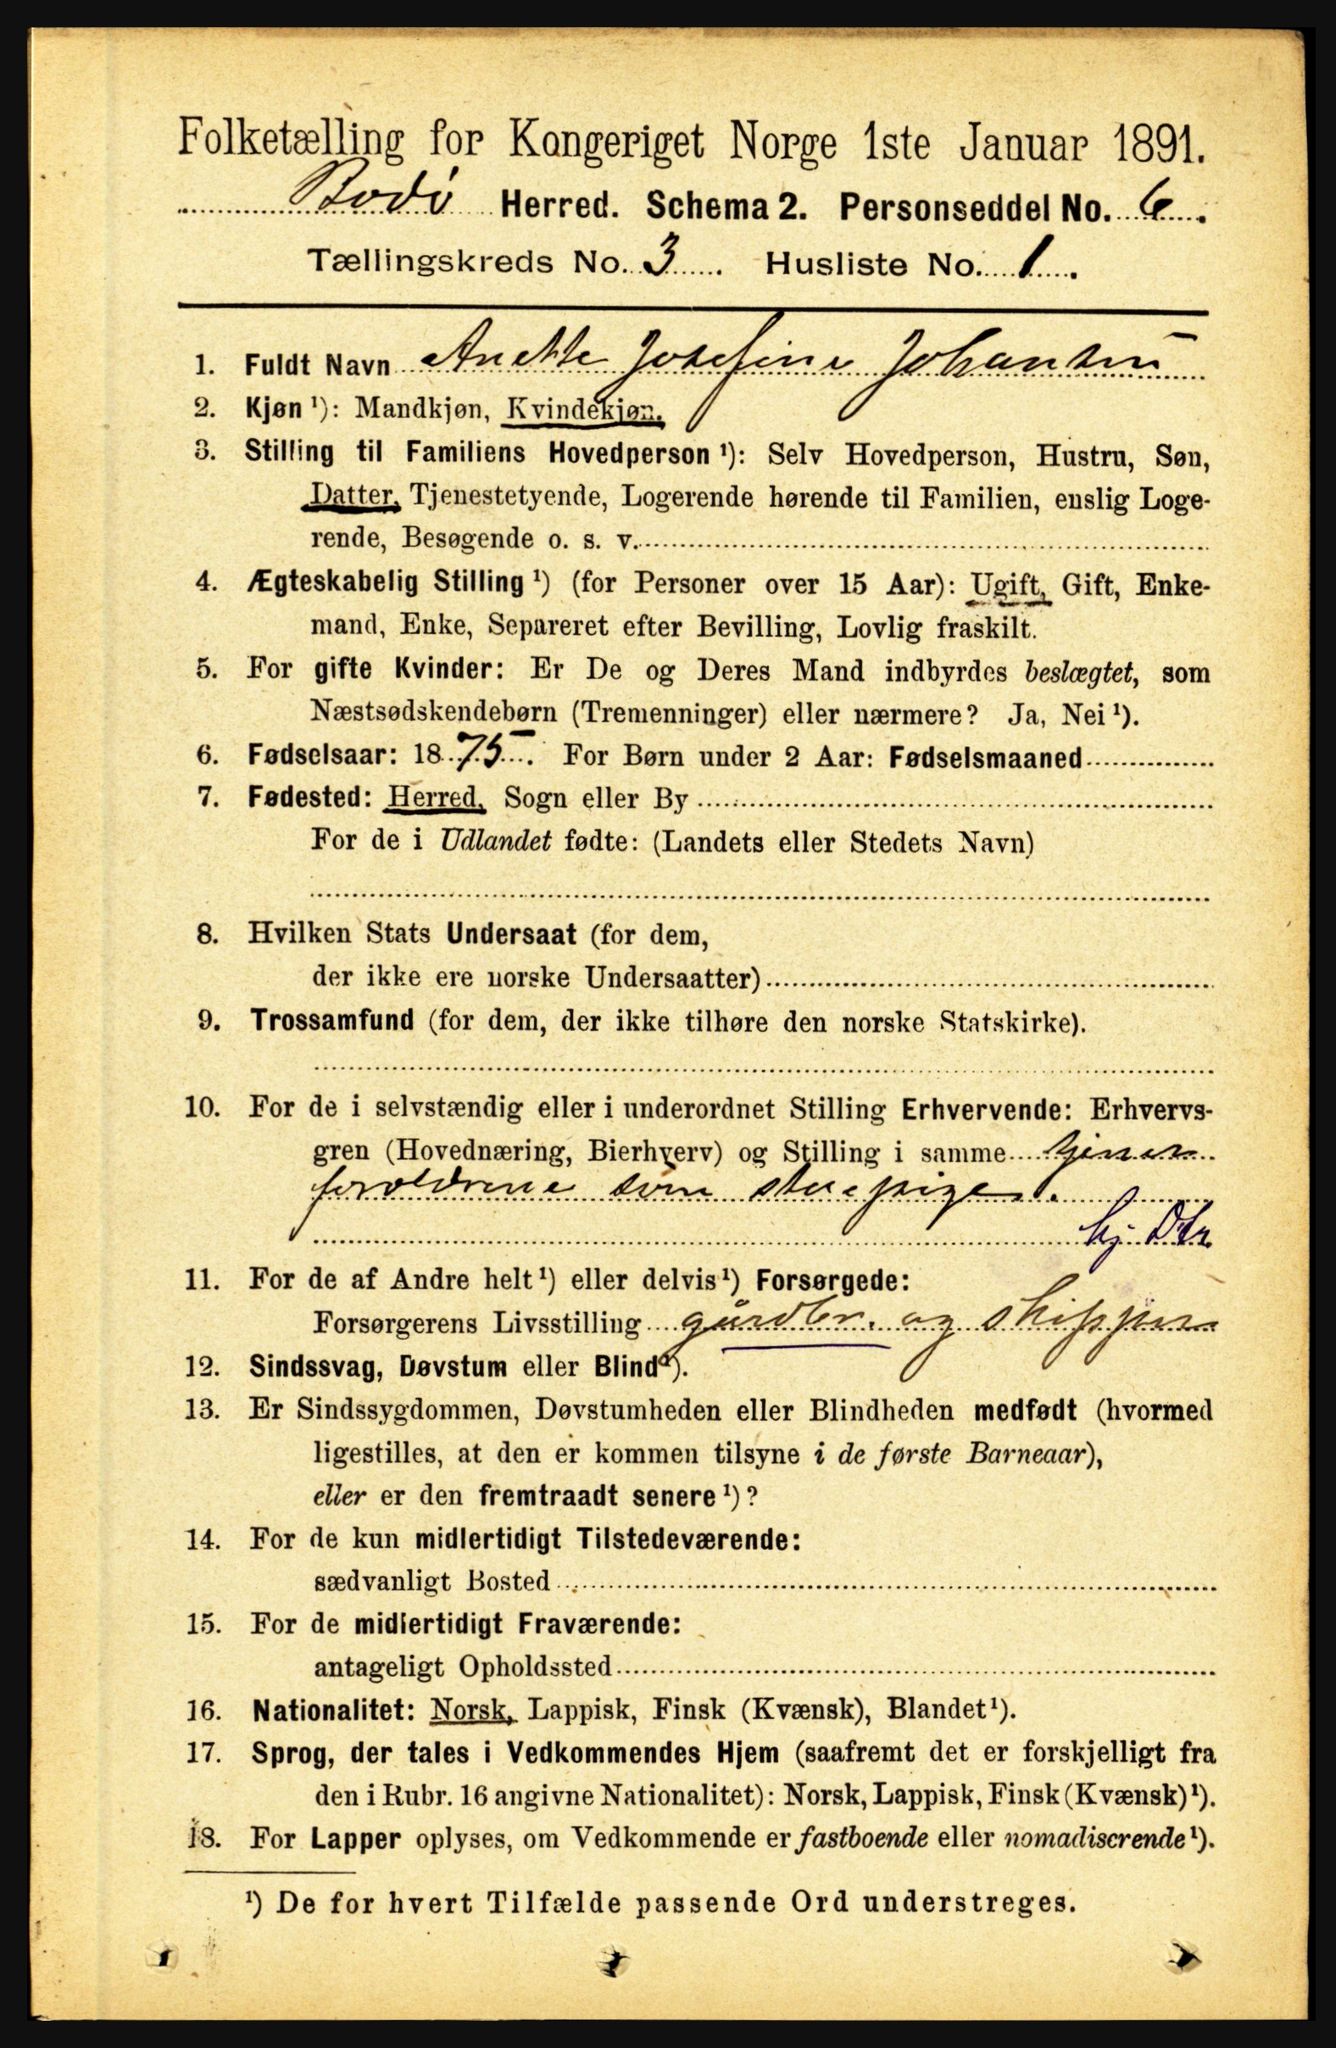 Folketælling for Kongeriget Norge 1ste Januar 1891.
Bodø Herred. Schema 2. Personseddel No. 6.
Tællingskreds No. 3. Husliste No. 1.
1. Fuldt Navn Anette Josefine Johansen
2. Kjøn ¹): Mandkjøn, Kvindekjøn.
3. Stilling til Familiens Hovedperson ¹): Selv Hovedperson, Hustru, Søn,
Datter, Tjenestetyende, Logerende hørende til Familien, enslig Loge-
rende, Besøgende o. s. v.
4. Ægteskabelig Stilling ¹) (for Personer over 15 Aar): Ugift, Gift, Enke-
mand, Enke, Separeret efter Bevilling, Lovlig fraskilt.
5. For gifte Kvinder: Er De og Deres Mand indbyrdes beslægtet, som
Næstsødskendebørn (Tremenninger) eller nærmere? Ja, Nei ¹).
6. Fødselsaar: 1875. For Børn under 2 Aar: Fødselsmaaned
7. Fødested: Herred, Sogn eller By
For de i Udlandet fødte: (Landets eller Stedets Navn)
8. Hvilken Stats Undersaat (for dem,
der ikke ere norske Undersaatter)
9. Trossamfund (for dem, der ikke tilhøre den norske Statskirke).
10. For de i selvstændig eller i underordnet Stilling Erhvervende: Erhvervs-
gren (Hovednæring, Bierhverv) og Stilling i samme tjener
forældrene som stuepige.
hj. Dtr
11. For de af Andre helt ¹) eller delvis ¹) Forsørgede:
Forsørgerens Livsstilling gårdbr. og skipper
12. Sindssvag, Døvstum eller Blind ¹).
13. Er Sindssygdommen, Døvstumheden eller Blindheden medfødt (hvormed
ligestilles, at den er kommen tilsyne i de første Barneaar),
eller er den fremtraadt senere ¹)?
14. For de kun midlertidigt Tilstedeværende:
sædvanligt Bosted
15. For de midlertidigt Fraværende:
antageligt Opholdssted
16. Nationalitet: Norsk, Lappisk, Finsk (Kvænsk), Blandet ¹).
17. Sprog, der tales i Vedkommendes Hjem (saafremt det er forskjelligt fra
den i Rubr. 16 angivne Nationalitet): Norsk, Lappisk, Finsk (Kvænsk) ¹).
18. For Lapper oplyses, om Vedkommende er fastboende eller nomadiserende ¹).
¹) De for hvert Tilfælde passende Ord understreges.